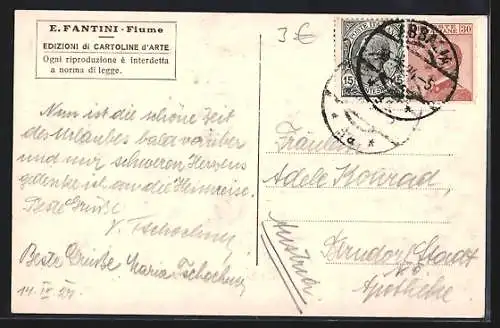 E. FANTINI - Fiume
EDIZIONI di CARTOLINE d'ARTE
Ogni riproduzione è interdetta
a norma di legge.
3 €
POSTE ITALIANE
15 15
30
ABBA
Nun ist die schöne Zeit
des Urlaubes bald vorüber
und nur schweren Herzens
gedenke ich an die Heimreise.
Beste Grüße
Beste Grüße Maria Tschochner
14. IV. 24.
Fräulein
Adele Konrad,
Zerndorf (Stadt
N.Ö.
Apotheke
Austria